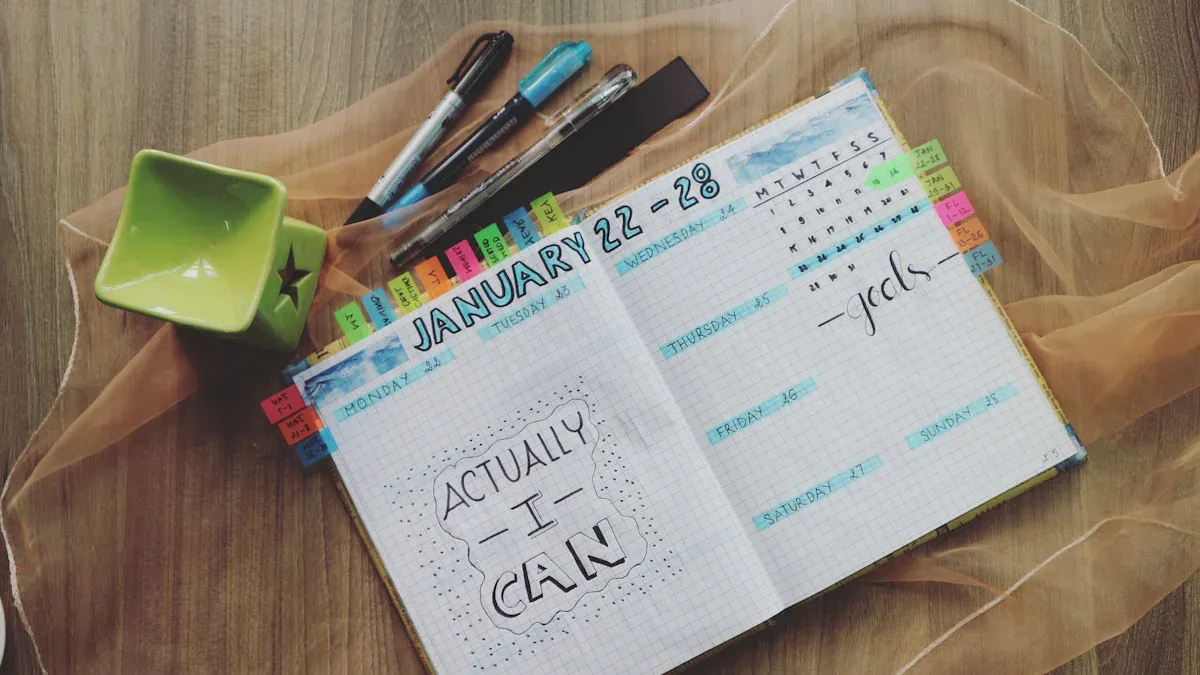 JANUARY 22-28
MONDAY 22
TUESDAY 23
ACTUALLY
- I -
CAN
WEDNESDAY 24
THURSDAY 25
FRIDAY 26
SATURDAY 27
SUNDAY 28
M T W T F S S
1 2 3 4 5 6 7
8 9 10 11
15 16 17 18 19 20 21
22 23 24 25 26 27 28
29 30 31
- goals -
KEY
JAN
22-28
JAN
29-31
FL
1-12
FL
13-26
FL